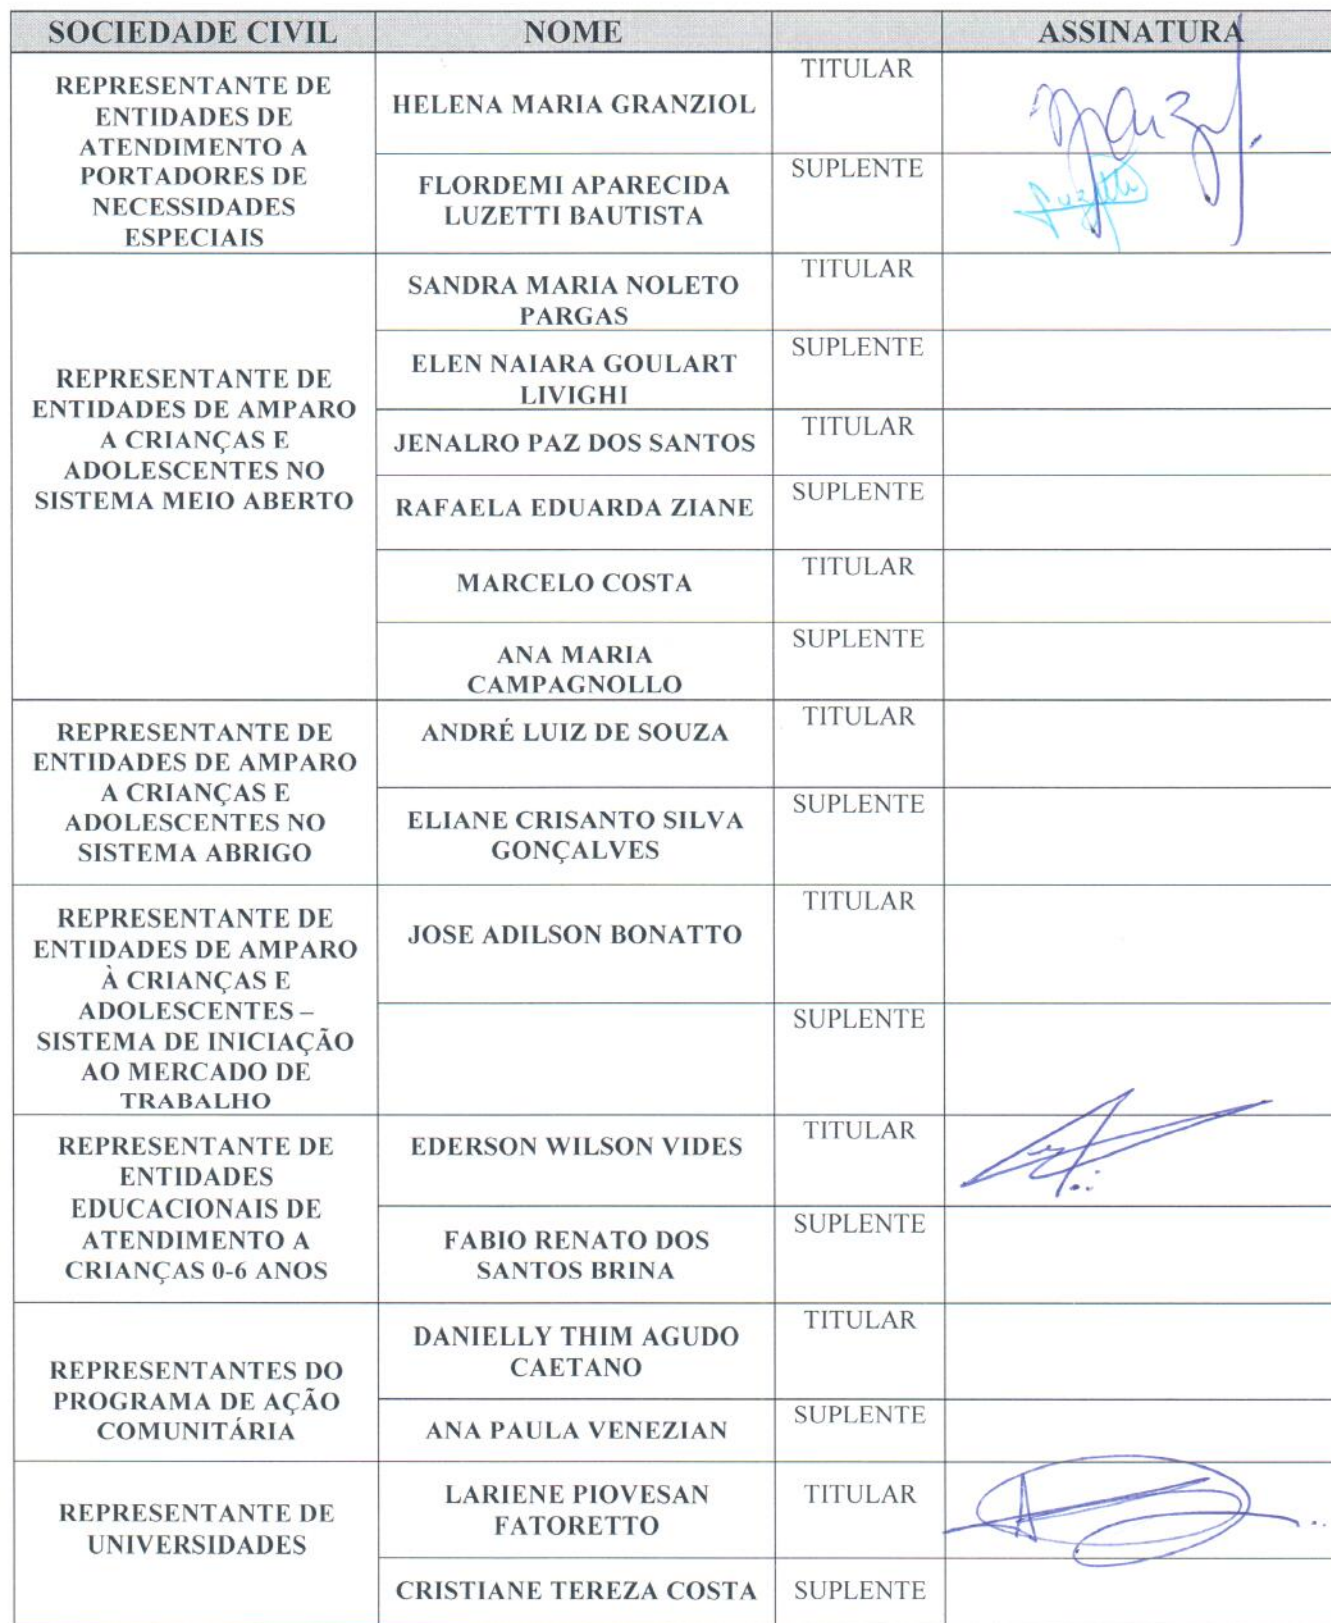 SOCIEDADE CIVIL NOME ASSINATURA
REPRESENTANTE DE
ENTIDADES DE
ATENDIMENTO A
PORTADORES DE
NECESSIDADES
ESPECIAIS
HELENA MARIA GRANZIOL
TITULAR
FLORDEMI APARECIDA
LUZETTI BAUTISTA
SUPLENTE
Luzetti
REPRESENTANTE DE
ENTIDADES DE AMPARO
A CRIANÇAS E
ADOLESCENTES NO
SISTEMA MEIO ABERTO
SANDRA MARIA NOLETO
PARGAS
TITULAR
ELEN NAIARA GOULART
LIVIGHI
SUPLENTE
JENALRO PAZ DOS SANTOS
TITULAR
RAFAELA EDUARDA ZIANE
SUPLENTE
MARCELO COSTA
TITULAR
ANA MARIA
CAMPAGNOLLO
SUPLENTE
REPRESENTANTE DE
ENTIDADES DE AMPARO
A CRIANÇAS E
ADOLESCENTES NO
SISTEMA ABRIGO
ANDRÉ LUIZ DE SOUZA
TITULAR
ELIANE CRISANTO SILVA
GONÇALVES
SUPLENTE
REPRESENTANTE DE
ENTIDADES DE AMPARO
À CRIANÇAS E
ADOLESCENTES –
SISTEMA DE INICIAÇÃO
AO MERCADO DE
TRABALHO
JOSE ADILSON BONATTO
TITULAR
SUPLENTE
REPRESENTANTE DE
ENTIDADES
EDUCACIONAIS DE
ATENDIMENTO A
CRIANÇAS 0-6 ANOS
EDERSON WILSON VIDES
TITULAR
FABIO RENATO DOS
SANTOS BRINA
SUPLENTE
REPRESENTANTES DO
PROGRAMA DE AÇÃO
COMUNITÁRIA
DANIELLY THIM AGUDO
CAETANO
TITULAR
ANA PAULA VENEZIAN
SUPLENTE
REPRESENTANTE DE
UNIVERSIDADES
LARIENE PIOVESAN
FATORETTO
TITULAR
CRISTIANE TEREZA COSTA
SUPLENTE